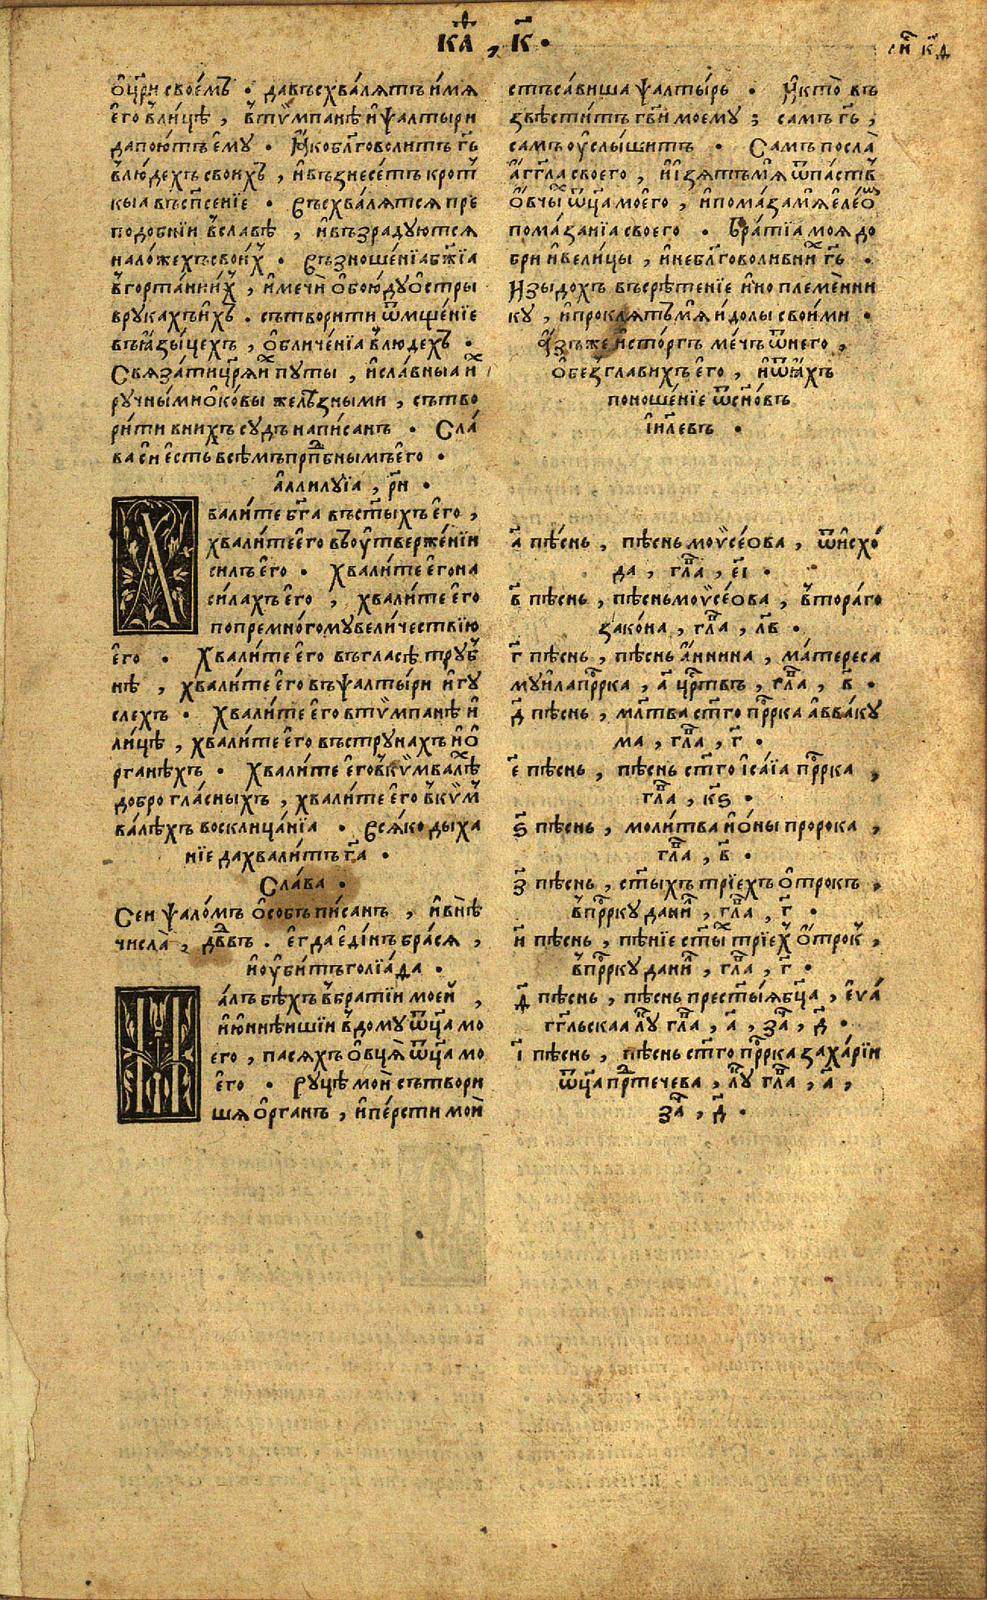 каѳ҃ , к҃ •
ли҃ к҃д
ѻц҃ри своемъ • давъсхвалятъ имя
его вълицѣ , втѷмпанѣ иѱалтыри
дапоютъ ему • Ꙗкоблаговолитъ гь҃
влюдехъ своихъ , ивъзнесетъ крот
кыа въсп҃сенїе • Въсхвалятся пре
подобнїи вславѣ , ивъзрадуются
наложехъсвоих • Възношенїаб҃жїа
вгортани их , имечи ѻбоюдуостры
врукахъ ихъ . сътворити ѿмщенїе
въꙗзыцехъ , ѻбличенїа влюдехъ •
Связатиц҃ряих путы , иславныа их
ручнымиѻковы желѣзными , сътво
рити внихъ судъ написанъ • Сла
ва си есть всѣмъпрпⷣбнымъ его •
аллилуїа , р҃н •
Хвалите бг҃а въст҃ыхъ его ,
хвалитеего въоутверженїи
силъ его • Хвалите егона
силахъ его , хвалите его
попремногомувеличествїю
его • Хвалите его въгласѣ труб
нѣ , хвалите его въѱалтыри игу
слехъ • Хвалите его втѷмпанѣ и
лицѣ , хвалите его въструнахъ иѻ
рганѣхъ • Хвалите еговкѷмвалѣх
доброгласныхъ , хвалите его вкѷм
валѣхъ восклицанїа • Всяко дыха
нїе дахвалитъ г҃а •
Слава •
Сеи ѱаломъ ѻсобь писанъ , ивнѣ
числа , дв҃въ . егда единъ брася ,
иоубитъголїада •
Малъ бѣхъ вбратїи моеи ,
июннѣишїи вдому ѿца мо
его , пасяхъ ѻвця ѿца мо
его • Руцѣ мои сътвори
шя ѻрганъ , иперсти мои
състависша ѱалтырь • Икто въ
звѣститъ г҃ви моему ; самъ г҃ь ,
самъ оуслышитъ • Самъ посла
аг҃гла своего , иїзятъмя ѿпаствъ
ѻвчы ѿца моего , ипомазамяелеѻм
помазанїа своего • Братїа моя до
бри ивелицы , инебл҃говоливних г҃ь •
Изыдохъ въсрѣтенїе ино племенни
ку , ипроклятъмя идолы своими •
Азъже исторгъ мечь ѿнего ,
ѻбезглавихъ его , иѿꙗхъ
поношенїе ѿсн҃овъ
їил҃евъ •
а҃ пѣснь , пѣснь моѷсеова , ѿисхо
да , гл҃а , е҃ї •
в҃ пѣснь , пѣсньмоѷсеова , втораго
закона , гл҃а , лв҃ •
г҃ пѣснь , пѣснь аннина , матереса
муилапр҃рка , а҃ цр҃твъ , гл҃а , в҃ •
д҃ пѣснь , мл҃тва ст҃го пр҃рка авваку
ма , гл҃а , г҃ •
е҃ пѣснь , пѣснь ст҃го їсаїа пр҃рка ,
гл҃а , кѕ҃ •
ѕ҃ пѣснь , молитва иѻны пророка ,
гл҃а , в҃ •
з҃ пѣснь , ст҃ыхъ трїехъ ѻтрокъ ,
впр҃рку данил , гл҃а , г҃ •
и҃ пѣснь , пѣнїе ст҃ых трїех ѻтрок ,
впр҃рку данил , гл҃а , г҃ •
ѳ҃ пѣснь , пѣснь прест҃ыябц҃а , еѵа
гг҃льскаа лу҃ гл҃а , а҃ , за҃ , д҃ •
ї҃ пѣснь , пѣснь ст҃го пр҃рка захарїи
ѿца прⷣтечева , лу҃ гл҃а , а҃ ,
за҃ , д҃ •